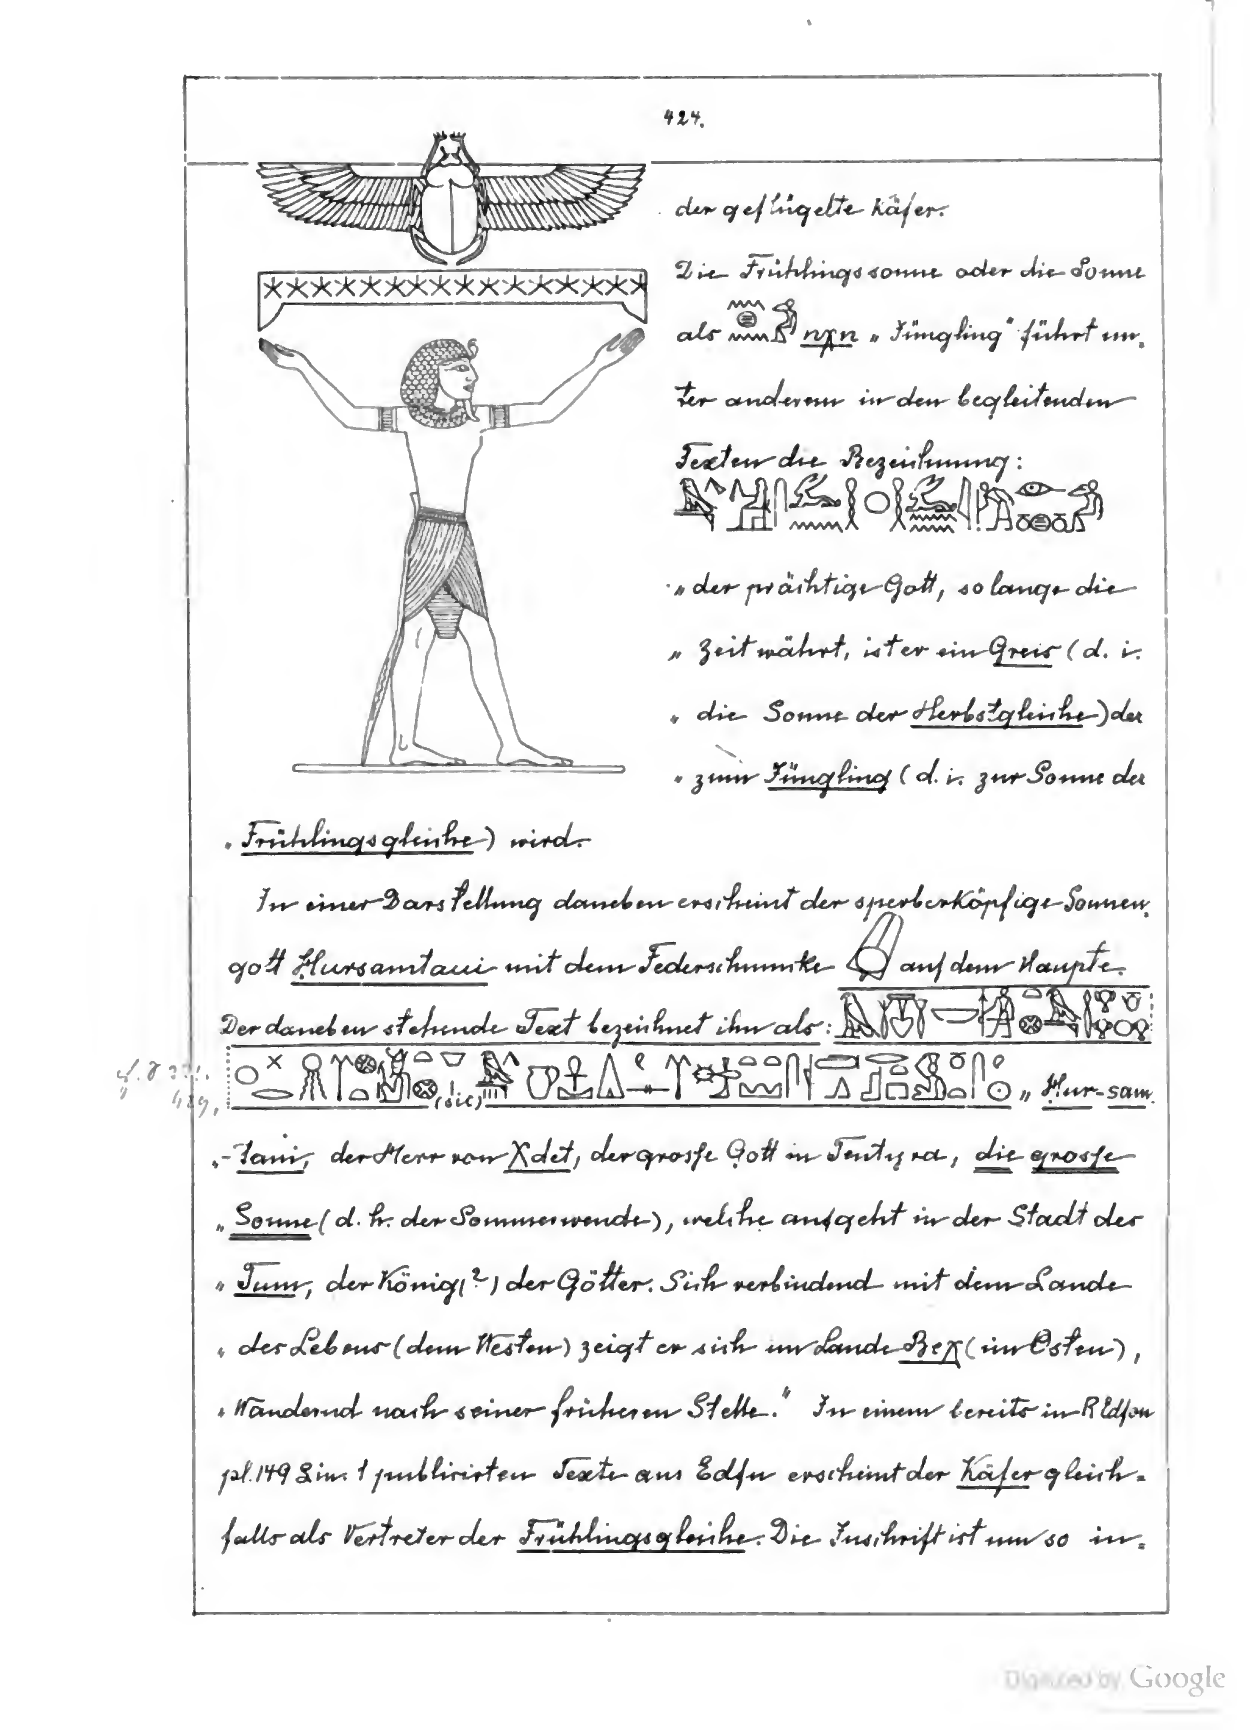 424.
der geflügelte Käfer.
Die Frühlingssonne oder die Sonne
als nχn „Jüngling" führt un-
ter anderem in den begleitenden
Texten die Bezeichnung:
„der prächtige Gott, so lange die
„Zeit währt, ist er ein Greis (d. i.
„die Sonne der Herbstgleiche) der
„zum Jüngling (d. i. zur Sonne der
„Frühlingsgleiche) wird.
In einer Darstellung daneben erscheint der sperberköpfige Sonnen-
gott Hursamtaui mit dem Federschmucke auf dem Haupte.
Der daneben stehende Text bezeichnet ihn als:
(sic) „Hur-sam-
„-taui, der Herr von Χdet, der grosse Gott in Tentyra, die grosse
„Sonne (d. h. der Sommerwende), welche aufgeht in der Stadt des
„Tum, der König(?) der Götter. Sich verbindend mit dem Lande
„des Lebens (dem Westen) zeigt er sich im Lande Beχ (im Osten),
„Wandernd nach seiner früheren Stelle." In einem bereits in R Edfou
pl. 149 Lin. 1 publicirten Texte aus Edfu erscheint der Käfer gleich-
falls als Vertreter der Frühlingsgleiche. Die Inschrift ist um so in-
Digitized by Google